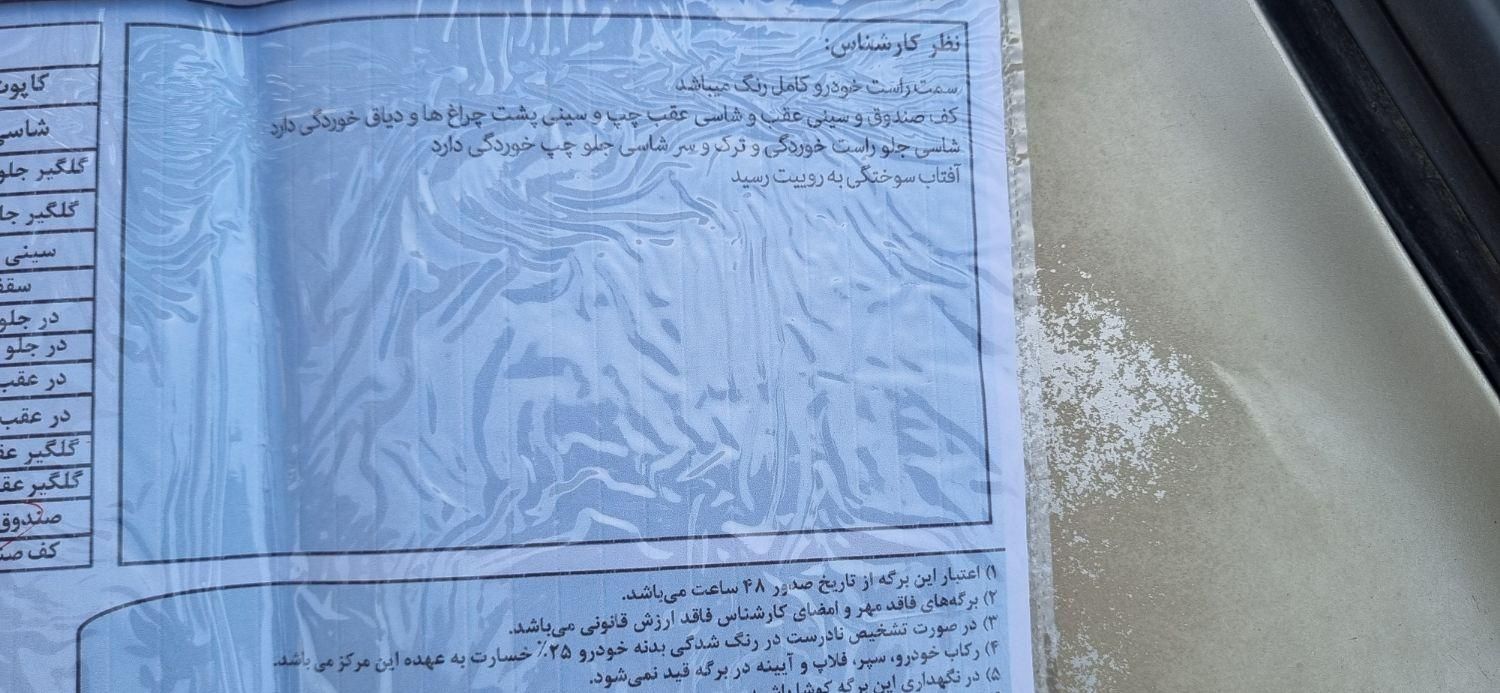 نظر کارشناس:
سمت راست خودرو کامل رنگ میباشد
کف صندوق و سینی عقب و شاسی عقب چپ و سینی پشت چراغ ها و دیاق خوردگی دارد
شاسی جلو راست خوردگی و ترک و سر شاسی جلو چپ خوردگی دارد
آفتاب سوختگی به روییت رسید
کاپوت
شاسی
گلگیر جلو
گلگیر جلو
سینی
سقف
در جلو
در جلو
در عقب
در عقب
گلگیر عق
گلگیر عق
صندوق
کف صن
۱) اعتبار این برگه از تاریخ صدور ۴۸ ساعت می‌باشد.
۲) برگه‌های فاقد مهر و امضای کارشناس فاقد ارزش قانونی می‌باشد.
۳) در صورت تشخیص نادرست در رنگ شدگی بدنه خودرو ۲۵٪ خسارت به عهده این مرکز می باشد.
۴) رکاب خودرو، سپر، فلاپ و آیینه در برگه قید نمی‌شود.
۵) در نگهداری این برگه کوشا باشید